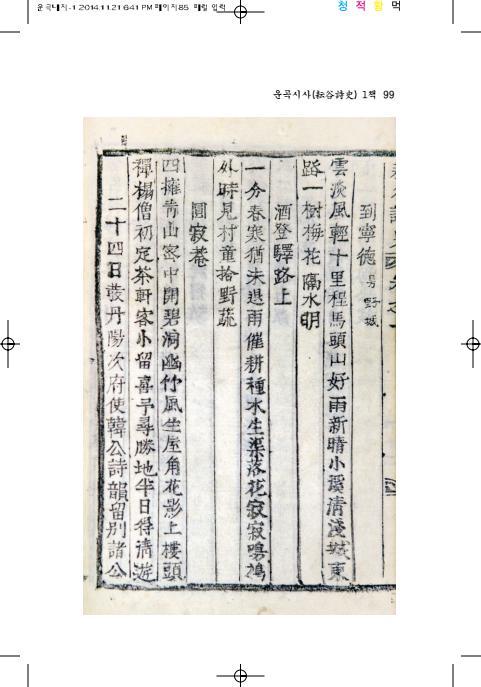 운곡대지-1 2014.11.21 6:41 PM 페이지85 매킬 입력
청 적 황 먹
운곡시사(耘谷詩史) 1책 99
到寧德 号野城
雲淡風輕十里程馬頭山好雨新晴小溪淸淺城東
路一樹梅花隔水明
酒登驛路上
一分春寒猶未退雨催耕種水生渠落花寂寂鳴鳩
外時見村童拾野蔬
圓寂菴
四擁靑山密中開碧洞幽竹風生屋角花影上樓頭
禪榻僧初定茶軒客小留喜予尋勝地半日得淸遊
二十四日發丹陽次府使韓公詩韻留別諸公